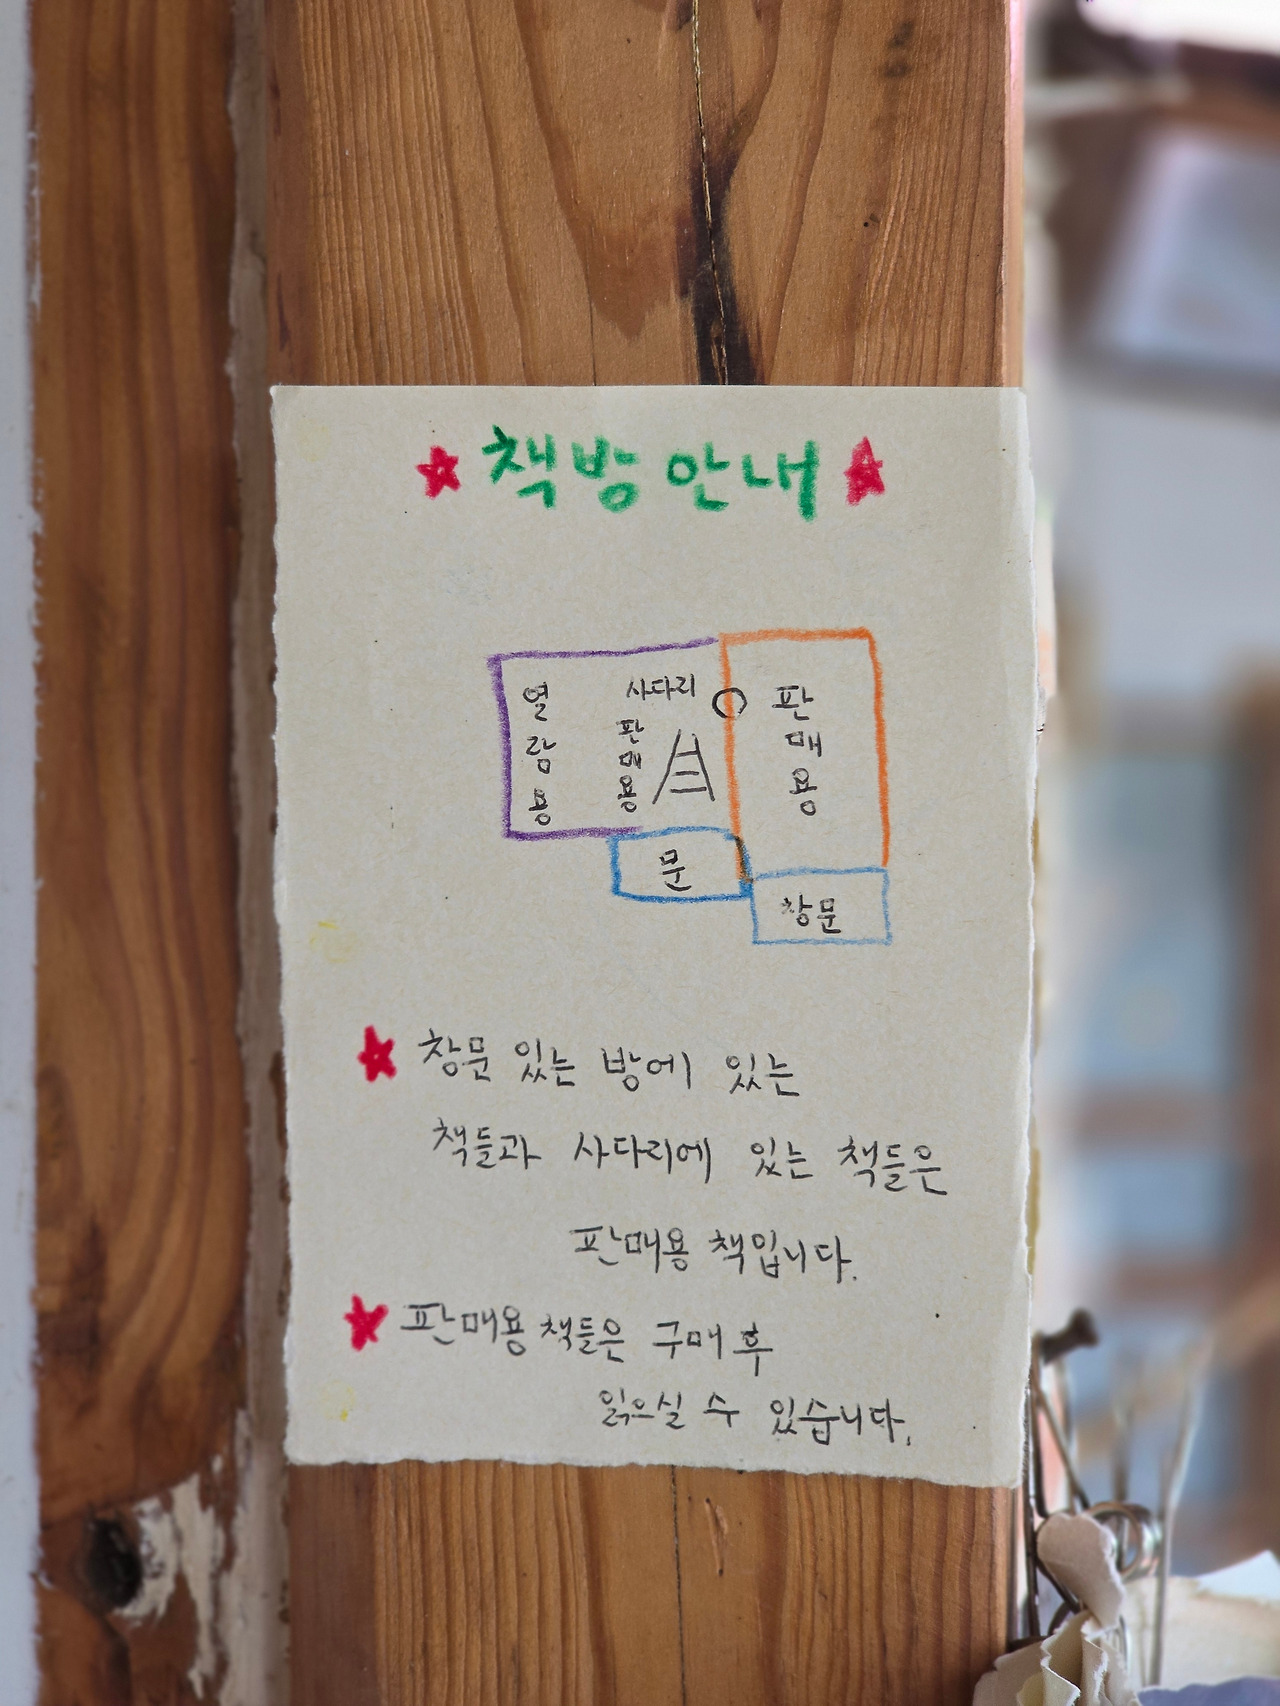 책방 안내
열람용
사다리
판매용
판매용
문
창문
창문 있는 방에 있는
책들과 사다리에 있는 책들은
판매용 책입니다.
판매용 책들은 구매 후
읽으실 수 있습니다.